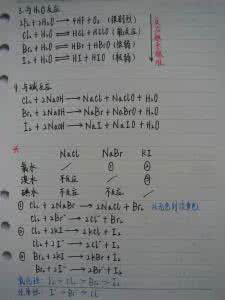 3. 与H₂O反应
2F₂+2H₂O⟶4HF+O₂ (很剧烈)
Cl₂+H₂O⇌HCl+HClO (能反应)
Br₂+H₂O⇌HBr+HBrO (较弱)
I₂+H₂O⇌HI+HIO (极弱)
反应越来越难
4. 与碱反应
Cl₂+2NaOH⟶NaCl+NaClO+H₂O
Br₂+2NaOH⟶NaBr+NaBrO+H₂O
I₂+2NaOH⟶NaI+NaIO+H₂O
NaCl NaBr KI
氯水 ① ②
溴水 不反应 ③
碘水 不反应 不反应
① Cl₂+2NaBr⟶2NaCl+Br₂
Cl₂+2Br⁻⟶2Cl⁻+Br₂
② Cl₂+2KI⟶2KCl+I₂
Cl₂+2I⁻⟶2Cl⁻+I₂
③ Br₂+2KI⟶2KBr+I₂
Br₂+2I⁻⟶2Br⁻+I₂
氧化性: Cl₂>Br₂>I₂
还原性: I⁻>Br⁻>Cl⁻